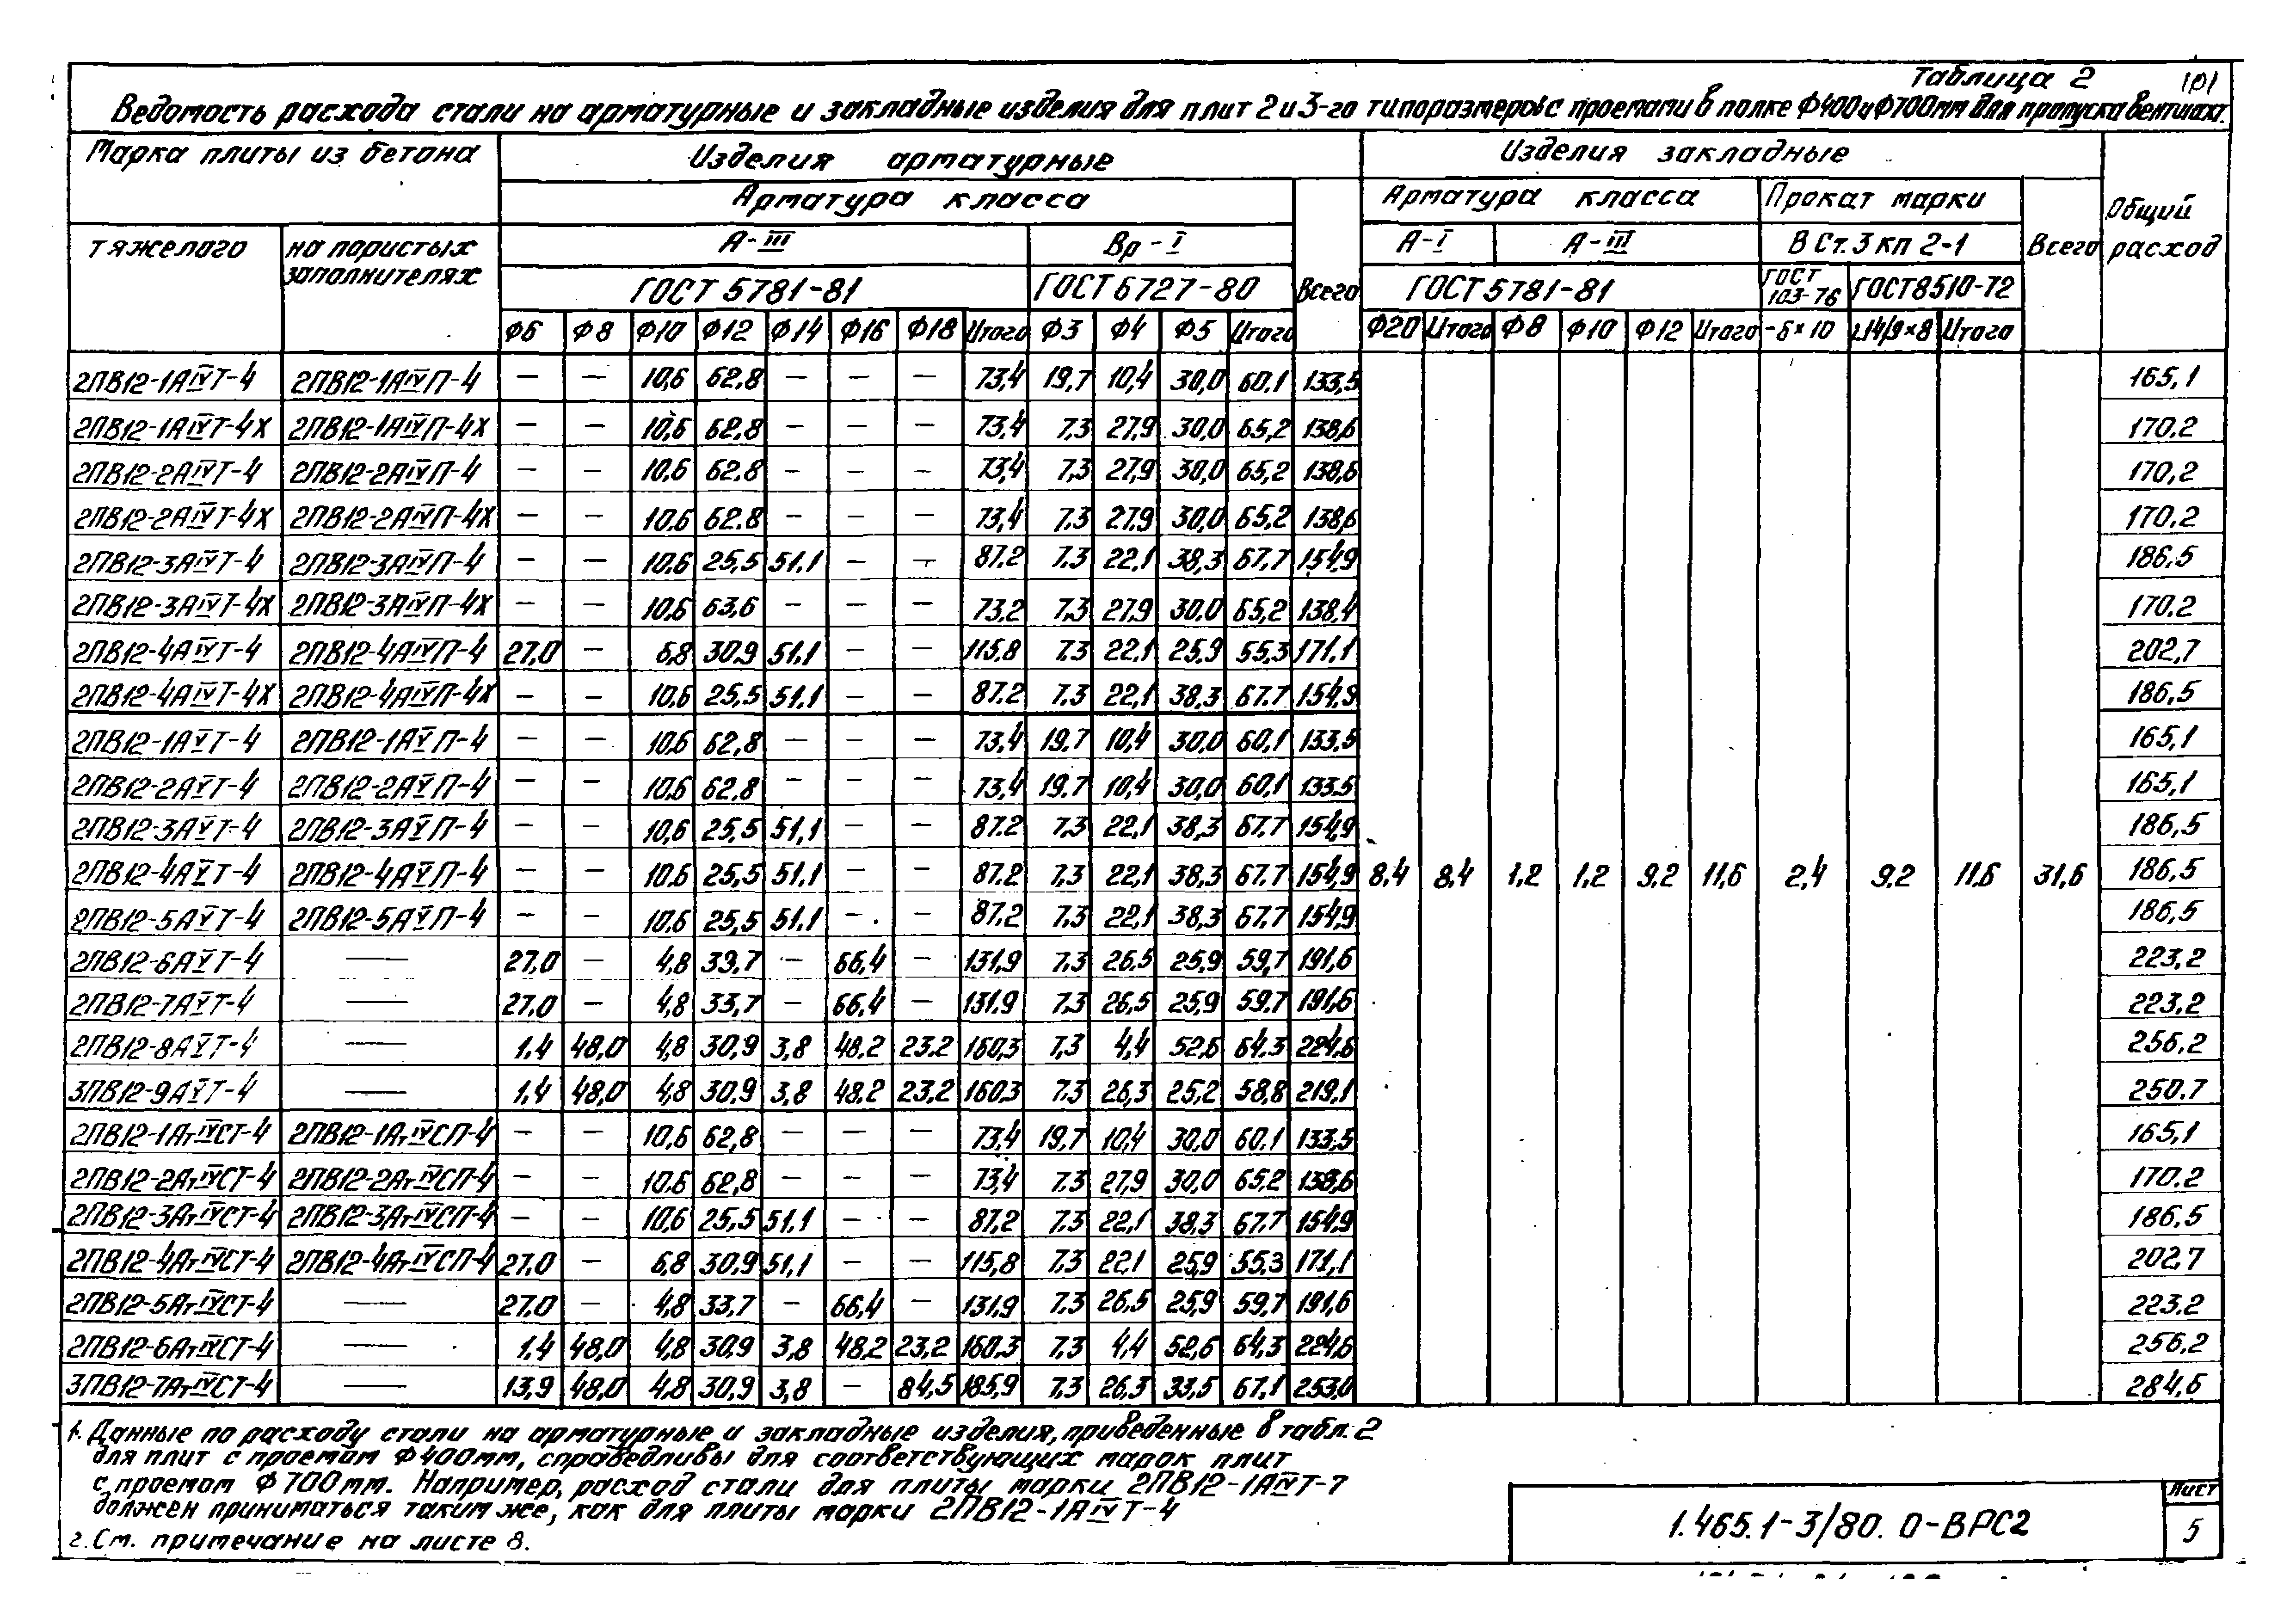 Таблица 2
Ведомость расхода стали на арматурные и закладные изделия для плит 2 и 3-го типоразмеров с проемами в полке Ф400 и Ф700мм для пропуска вентшахт.
Марка плиты из бетона Изделия арматурные Изделия закладные Общий расход
Арматура класса Всего Арматура класса Прокат марки Всего
тяжелого на пористых заполнителях А-III Вр-I А-I А-III ВСт.3кп2-1
ГОСТ 5781-81 ГОСТ 6727-80 ГОСТ 5781-81 ГОСТ 103-76 ГОСТ 8510-72
Ф6 Ф8 Ф10 Ф12 Ф14 Ф16 Ф18 Итого Ф3 Ф4 Ф5 Итого Ф20 Итого Ф8 Ф10 Ф12 Итого -6×10 Итого
2ПВ12-1АIVТ-4 2ПВ12-1АIVП-4 — — 10,6 62,8 — — — 73,4 19,7 10,4 30,0 60,1 133,5 165,1
2ПВ12-1АIVТ-4Х 2ПВ12-1АIVП-4Х — — 10,6 62,8 — — — 73,4 7,3 27,9 30,0 65,2 138,6 170,2
2ПВ12-2АIVТ-4 2ПВ12-2АIVП-4 — — 10,6 62,8 — — — 73,4 7,3 27,9 30,0 65,2 138,6 170,2
2ПВ12-2АIVТ-4Х 2ПВ12-2АIVП-4Х — — 10,6 62,8 — — — 73,4 7,3 27,9 30,0 65,2 138,6 170,2
2ПВ12-3АIVТ-4 2ПВ12-3АIVП-4 — — 10,6 25,5 51,1 — — 87,2 7,3 22,1 38,3 67,7 154,9 186,5
2ПВ12-3АIVТ-4Х 2ПВ12-3АIVП-4Х — — 10,6 63,6 — — — 73,2 7,3 27,9 30,0 65,2 138,4 170,2
2ПВ12-4АIVТ-4 2ПВ12-4АIVП-4 27,0 — 6,8 30,9 51,1 — — 115,8 7,3 22,1 25,9 55,3 171,1 202,7
2ПВ12-4АIVТ-4Х 2ПВ12-4АIVП-4Х — — 10,6 25,5 51,1 — — 87,2 7,3 22,1 38,3 67,7 154,9 186,5
2ПВ12-1АVТ-4 2ПВ12-1АVП-4 — — 10,6 62,8 — — — 73,4 19,7 10,4 30,0 60,1 133,5 165,1
2ПВ12-2АVТ-4 2ПВ12-2АVП-4 — — 10,6 62,8 — — — 73,4 19,7 10,4 30,0 60,1 133,5 165,1
2ПВ12-3АVТ-4 2ПВ12-3АVП-4 — — 10,6 25,5 51,1 — — 87,2 7,3 22,1 38,3 67,7 154,9 186,5
2ПВ12-4АVТ-4 2ПВ12-4АVП-4 — — 10,6 25,5 51,1 — — 87,2 7,3 22,1 38,3 67,7 154,9 8,4 8,4 1,2 1,2 9,2 11,6 2,4 9,2 11,6 31,6 186,5
2ПВ12-5АVТ-4 2ПВ12-5АVП-4 — — 10,6 25,5 51,1 — — 87,2 7,3 22,1 38,3 67,7 154,9 186,5
2ПВ12-6АVТ-4 — 27,0 — 4,8 33,7 — 66,4 — 131,9 7,3 26,5 25,9 59,7 191,6 223,2
2ПВ12-7АVТ-4 — 27,0 — 4,8 33,7 — 66,4 — 131,9 7,3 26,5 25,9 59,7 191,6 223,2
2ПВ12-8АVТ-4 — 1,4 48,0 4,8 30,9 3,8 48,2 23,2 160,3 7,3 4,4 52,6 64,3 224,6 256,2
3ПВ12-9АVТ-4 — 1,4 48,0 4,8 30,9 3,8 48,2 23,2 160,3 7,3 26,3 25,2 58,8 219,1 250,7
2ПВ12-1АтIVСТ-4 2ПВ12-1АтIVСП-4 — — 10,6 62,8 — — — 73,4 19,7 10,4 30,0 60,1 133,5 165,1
2ПВ12-2АтIVСТ-4 2ПВ12-2АтIVСП-4 — — 10,6 62,8 — — — 73,4 7,3 27,9 30,0 65,2 138,6 170,2
2ПВ12-3АтIVСТ-4 2ПВ12-3АтIVСП-4 — — 10,6 25,5 51,1 — — 87,2 7,3 22,1 38,3 67,7 154,9 186,5
2ПВ12-4АтIVСТ-4 2ПВ12-4АтIVСП-4 27,0 — 6,8 30,9 51,1 — — 115,8 7,3 22,1 25,9 55,3 171,1 202,7
2ПВ12-5АтIVСТ-4 — 27,0 — 4,8 33,7 — 66,4 — 131,9 7,3 26,5 25,9 59,7 191,6 223,2
2ПВ12-6АтIVСТ-4 — 1,4 48,0 4,8 30,9 3,8 48,2 23,2 160,3 7,3 4,4 52,6 64,3 224,6 256,2
3ПВ12-7АтIVСТ-4 — 13,9 48,0 4,8 30,9 3,8 — 84,5 185,9 7,3 26,3 33,5 67,1 253,0 284,6
1. Данные по расходу стали на арматурные и закладные изделия, приведенные в табл. 2
для плит с проемом Ф400мм, справедливы для соответствующих марок плит
с проемом Ф700мм. Например, расход стали для плиты марки 2ПВ12-1АIVТ-7
должен приниматься таким же, как для плиты марки 2ПВ12-1АIVТ-4
2. См. примечание на листе 8.
1.465.1-3/80. 0-ВРС2
Лист
5